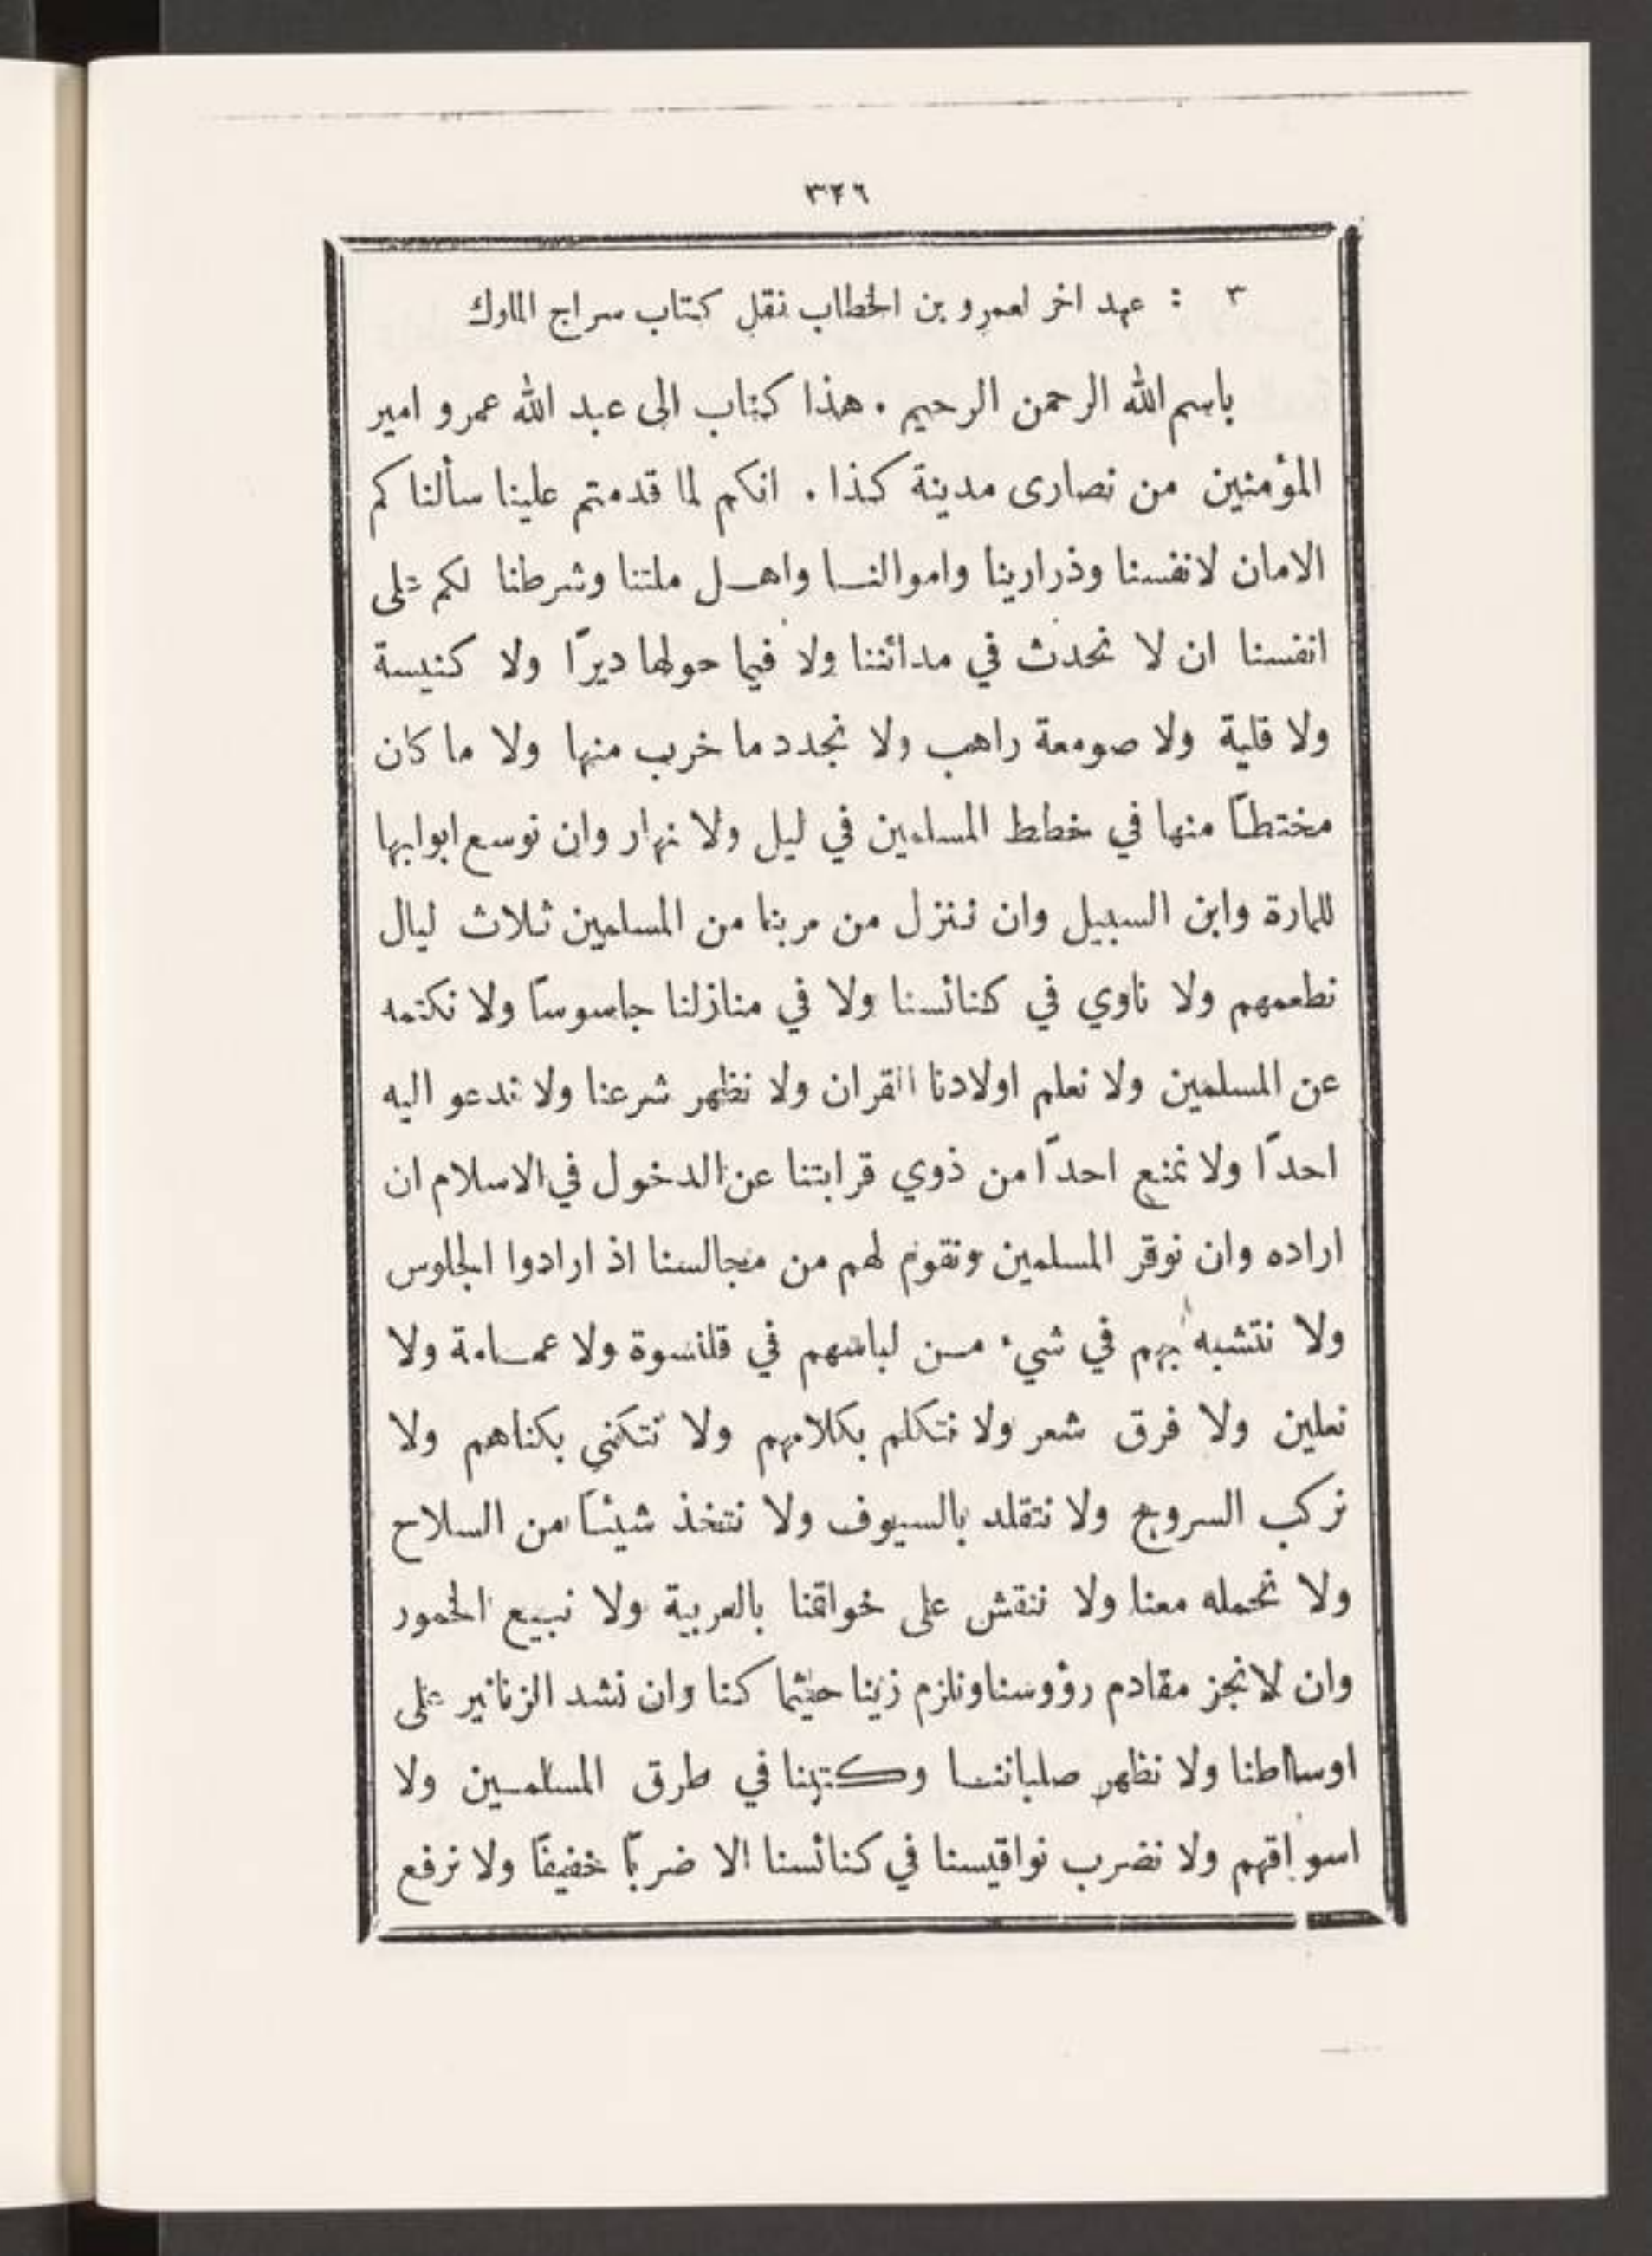 ٣٢٦
٣ : عهد اخر لعمرو بن الخطاب نقل كتاب سراج الملوك
باسم الله الرحمن الرحيم . هذا كتاب الى عبد الله عمرو امير
المؤمنين من نصارى مدينة كذا . انكم لما قدمتم علينا سألناكم
الامان لانفسنا وذرارينا واموالنا واهل ملتنا وشرطنا لكم على
انفسنا ان لا نحدث في مدائننا ولا فيما حولها ديرًا ولا كنيسة
ولا قلية ولا صومعة راهب ولا نجدد ما خرب منها ولا ما كان
مختطًا منها في خطط المسلمين في ليل ولا نهار وان نوسع ابوابها
للمارة وابن السبيل وان ننزل من مر بنا من المسلمين ثلاث ليال
نطعمهم ولا ناوي في كنائسنا ولا في منازلنا جاسوسًا ولا نكتمه
عن المسلمين ولا نعلم اولادنا القران ولا نظهر شرعنا ولا ندعو اليه
احدًا ولا نمنع احدًا من ذوي قرابتنا عن الدخول في الاسلام ان
اراده وان نوقر المسلمين ونقوم لهم من مجالسنا اذ ارادوا الجلوس
ولا نتشبه بهم في شيء من لباسهم في قلنسوة ولا عمامة ولا
نعلين ولا فرق شعر ولا نتكلم بكلامهم ولا نتكنى بكناهم ولا
نركب السروج ولا نتقلد بالسيوف ولا نتخذ شيئًا من السلاح
ولا نحمله معنا ولا ننقش على خواتمنا بالعربية ولا نبيع الخمور
وان لانجز مقادم رؤوسنا ونلزم زينا حيثما كنا وان نشد الزنانير على
اوساطنا ولا نظهر صلباننا وكتبنا في طرق المسلمين ولا
اسواقهم ولا نضرب نواقيسنا في كنائسنا الا ضربًا خفيفًا ولا نرفع